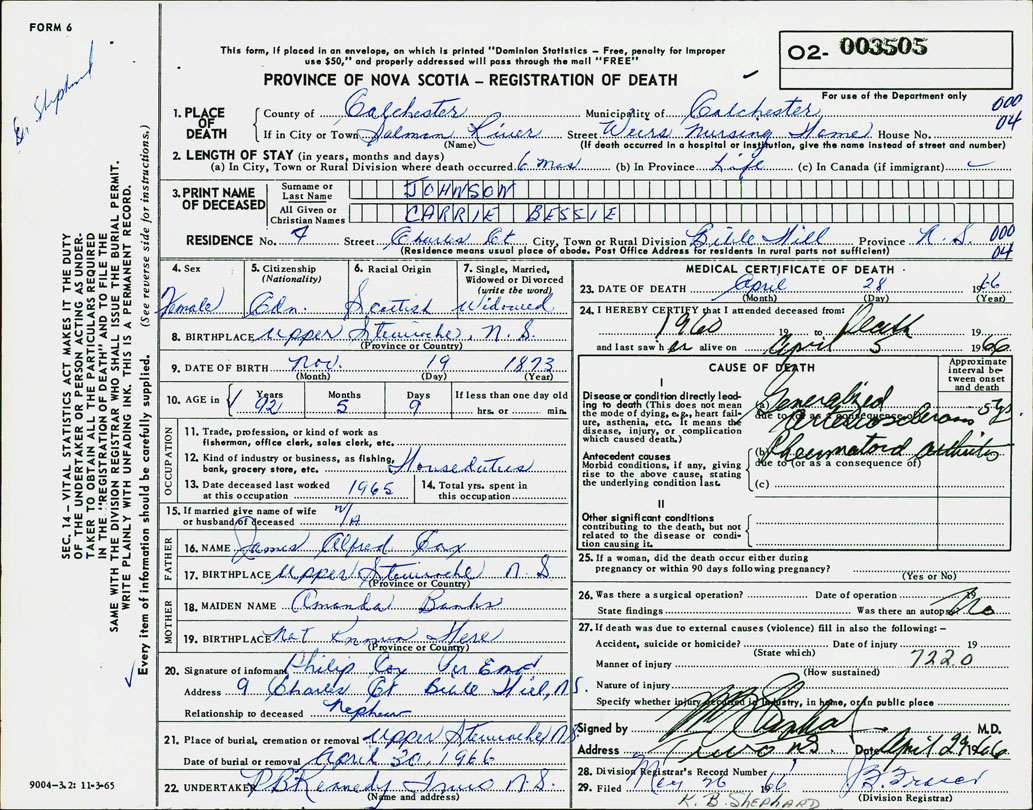 FORM 6
This form, if placed in an envelope, on which is printed "Dominion Statistics – Free, penalty for improper
use $50," and properly addressed will pass through the mail "FREE"
PROVINCE OF NOVA SCOTIA – REGISTRATION OF DEATH
O2- 003505
For use of the Department only
1. PLACE OF DEATH
County of Colchester Municipality of Colchester 000
If in City or Town Salmon River Street Weirs Nursing Home House No. 04
(Name) (If death occurred in a hospital or institution, give the name instead of street and number)
2. LENGTH OF STAY (in years, months and days)
(a) In City, Town or Rural Division where death occurred 6 mos (b) In Province Life (c) In Canada (if immigrant) –
3. PRINT NAME OF DECEASED
Surname or Last Name JOHNSON
All Given or Christian Names CARRIE BESSIE
RESIDENCE No. Street Charles Ct City, Town or Rural Division Bible Hill Province N.S. 000
(Residence means usual place of abode. Post Office Address for residents in rural parts not sufficient) 04
4. Sex 5. Citizenship (Nationality) 6. Racial Origin 7. Single, Married, Widowed or Divorced (write the word)
Female Cdn. Scottish Widowed
8. BIRTHPLACE Upper Stewiacke, N.S.
(Province or Country)
9. DATE OF BIRTH Nov. 19 1873
(Month) (Day) (Year)
10. AGE in Years Months Days If less than one day old
92 5 9 hrs. or min.
OCCUPATION
11. Trade, profession, or kind of work as
fisherman, office clerk, sales clerk, etc.
12. Kind of industry or business, as fishing,
bank, grocery store, etc. Houseduties
13. Date deceased last worked
at this occupation 1965
14. Total yrs. spent in
this occupation
15. If married give name of wife
or husband of deceased N/A
FATHER
16. NAME James Alfred Cox
17. BIRTHPLACE Upper Stewiacke N.S
(Province or Country)
MOTHER
18. MAIDEN NAME Amanda Banks
19. BIRTHPLACE Not Known Here
(Province or Country)
20. Signature of informant Philip Cox
Address 9 Charles Ct Bible Hill, N.S.
Relationship to deceased Nephew
21. Place of burial, cremation or removal Upper Stewiacke N.S
Date of burial or removal April 30, 1966
22. UNDERTAKER Kennedy Truro N.S.
(Name and address)
MEDICAL CERTIFICATE OF DEATH
23. DATE OF DEATH April 28 1966
(Month) (Day) (Year)
24. I HEREBY CERTIFY that I attended deceased from:
1960 19 to Death 19
and last saw her alive on April 5 1966
CAUSE OF DEATH
Approximate interval between onset and death
I
Disease or condition directly leading to death (This does not mean the mode of dying, e.g., heart failure, asthenia, etc. It means the disease, injury, or complication which caused death.)
(a) Generalized
due to (or as a consequence of)
Arteriosclerosis 5 yrs
Antecedent causes
Morbid conditions, if any, giving rise to the above cause, stating the underlying condition last.
(b) Rheumatoid arthritis
due to (or as a consequence of)
(c)
II
Other significant conditions
contributing to the death, but not related to the disease or condition causing it.
25. If a woman, did the death occur either during
pregnancy or within 90 days following pregnancy?
(Yes or No)
26. Was there a surgical operation? Date of operation 19
State findings Was there an autopsy No
27. If death was due to external causes (violence) fill in also the following: –
Accident, suicide or homicide? Date of injury 19
(State which)
Manner of injury 7220
(How sustained)
Nature of injury
Specify whether injury occurred in industry, in home, or in public place
Signed by M.D.
Address Truro NS Date April 29 1966
28. Division Registrar's Record Number
29. Filed May 26 1966 J.B. Fraser
(Division Registrar)
K. B. SHEPHARD
SEC. 14 – VITAL STATISTICS ACT MAKES IT THE DUTY
OF THE UNDERTAKER OR PERSON ACTING AS UNDER-
TAKER TO OBTAIN ALL THE PARTICULARS REQUIRED
IN THE "REGISTRATION OF DEATH" AND TO FILE THE
SAME WITH THE DIVISION REGISTRAR WHO SHALL ISSUE THE BURIAL PERMIT.
WRITE PLAINLY WITH UNFADING INK. THIS IS A PERMANENT RECORD.
Every item of information should be carefully supplied. (See reverse side for instructions.)
9004–3.2: 11-3-65